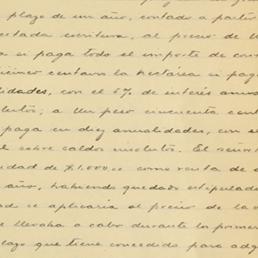 plazo de un año, contado a partir
citada escritura, al precio de U
si paga todo el importe de con
cinco centavos la hectárea si pag
lidades, con el 6% de interés anua
lutos; a un peso cincuenta cent
paga en diez anualidades, con el
el sobre saldos insolutos. El señor
tidad de $1.000.00 como renta de
año, habiendo quedado estipulado
ad se aplicaría al precio de la
llevaba a cabo durante los primer
lazo que tiene concedido para adq